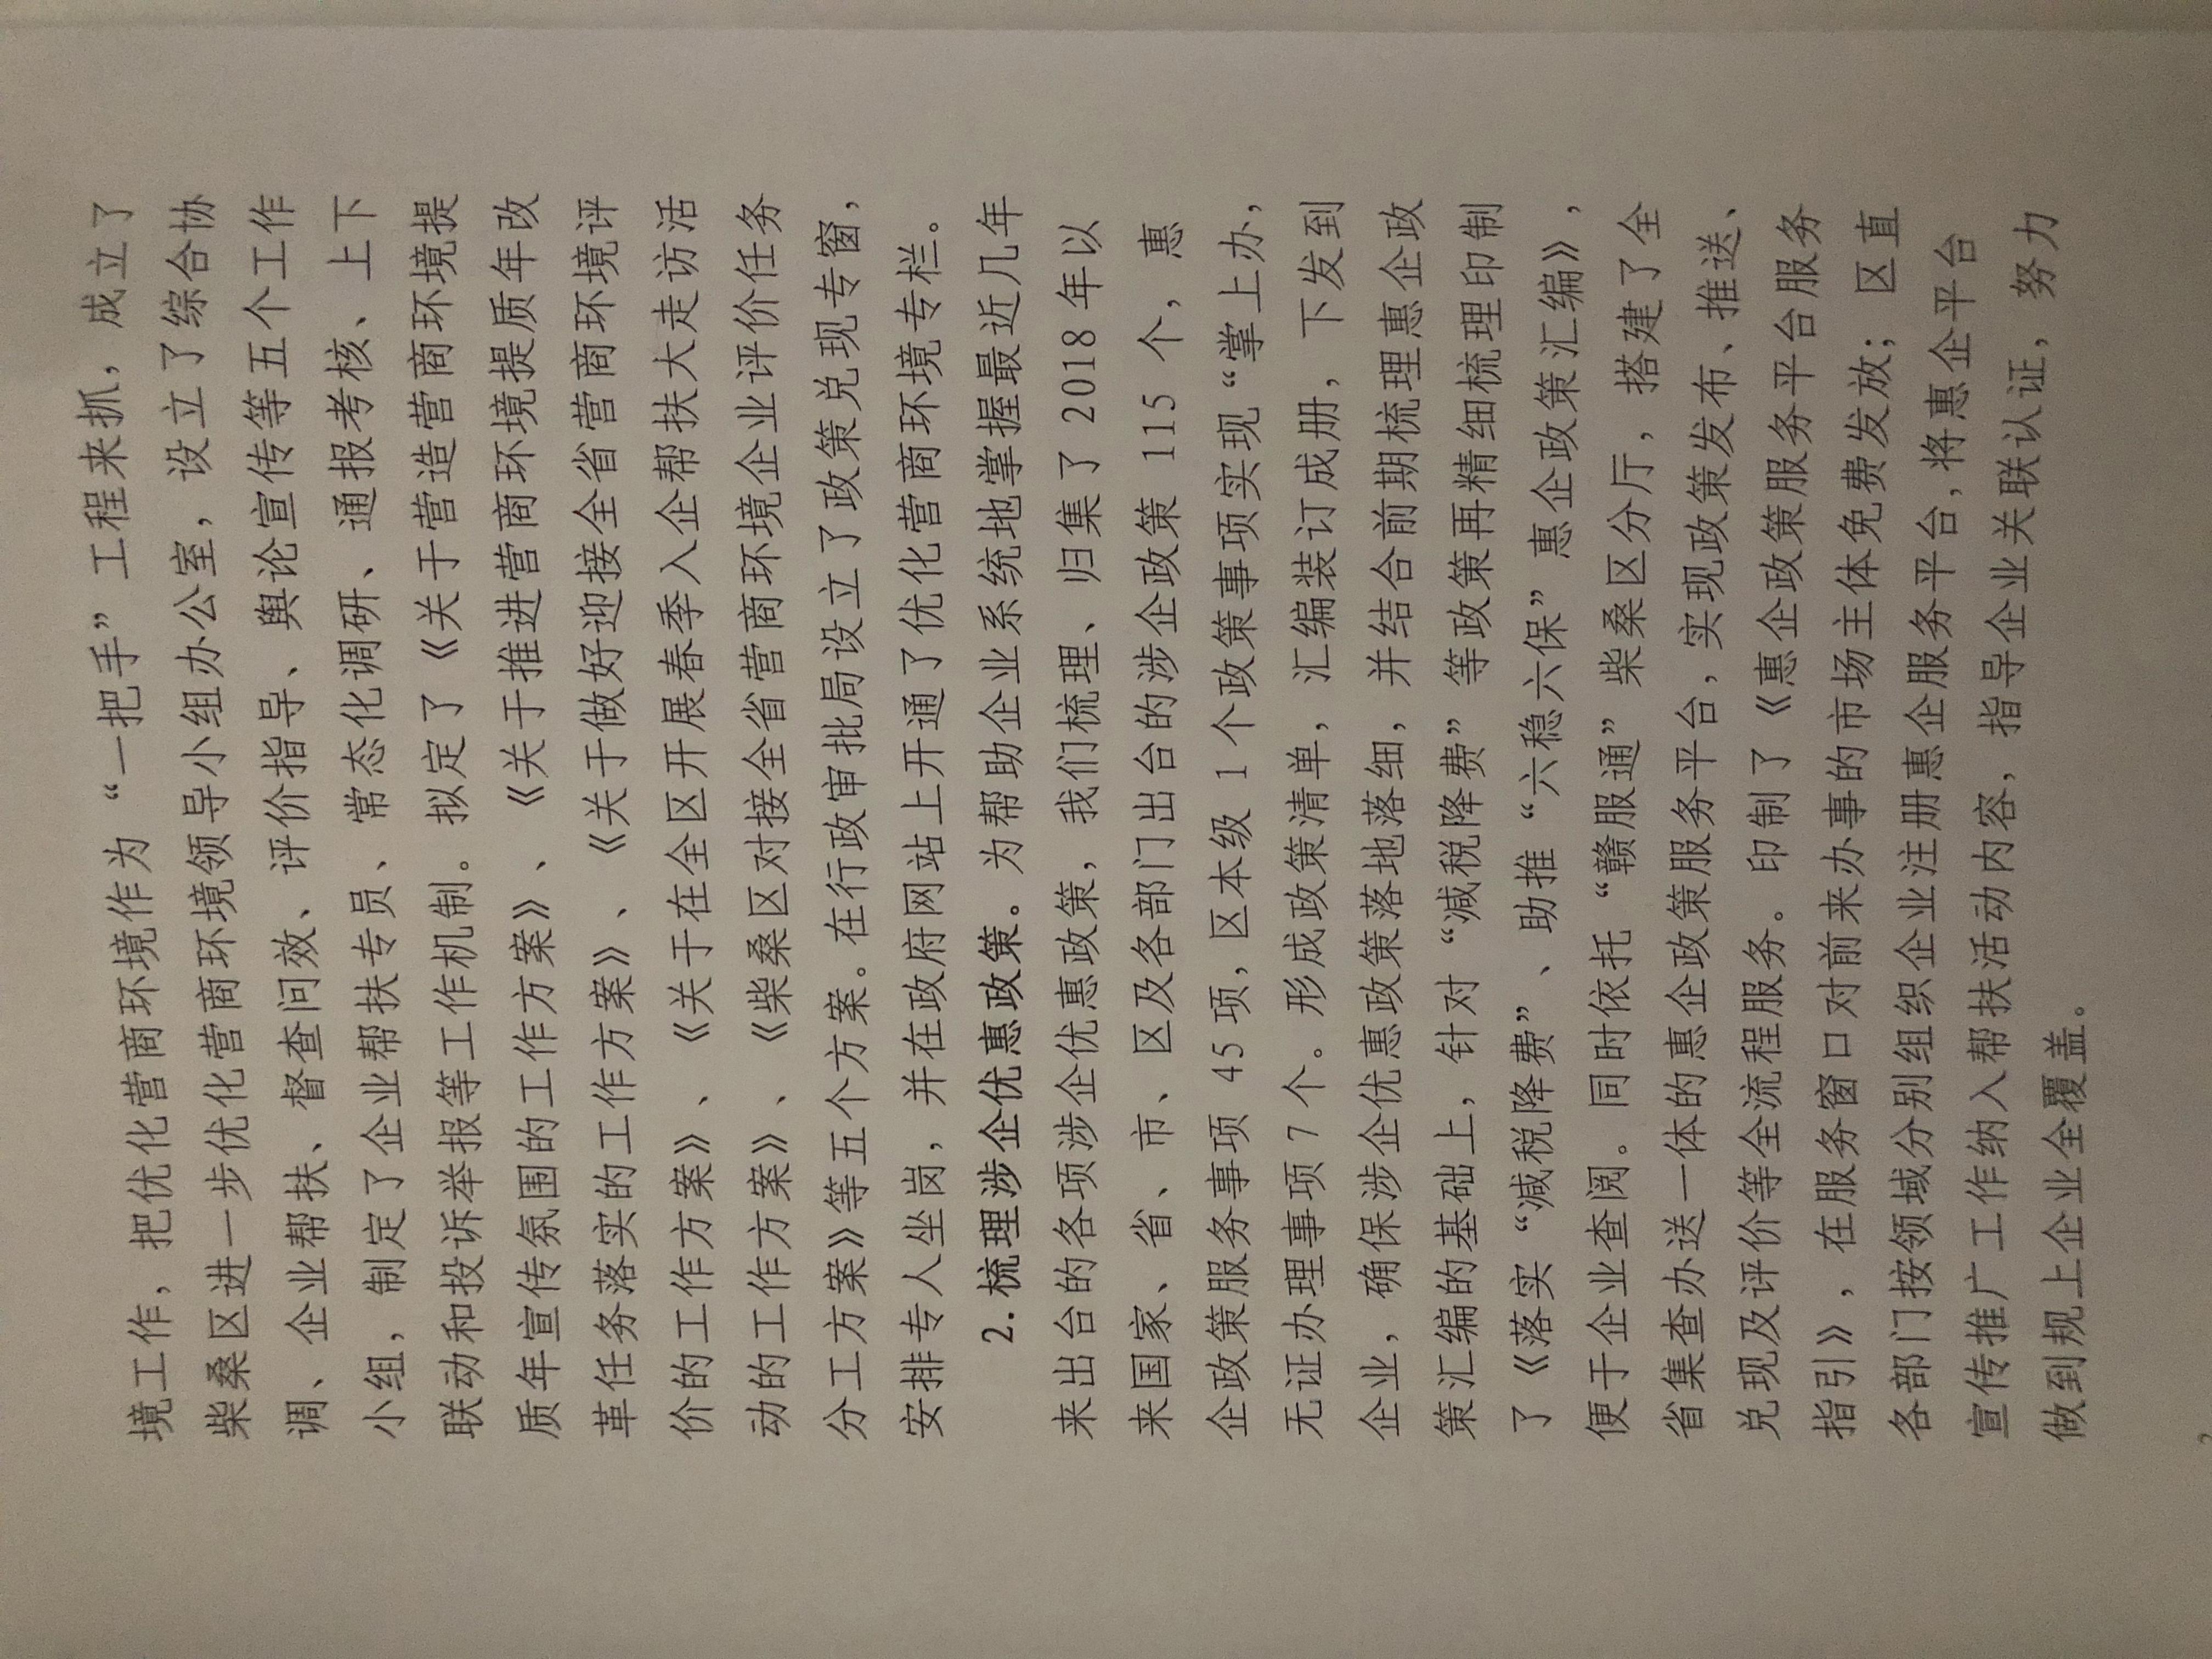 境工作，把优化营商环境作为“一把手”工程来抓，成立了
柴桑区进一步优化营商环境领导小组办公室，设立了综合协
调、企业帮扶、督查问效、评价指导、舆论宣传等五个工作
小组，制定了企业帮扶专员、常态化调研、通报考核、上下
联动和投诉举报等工作机制。拟定了《关于营造营商环境提
质年宣传氛围的工作方案》、《关于推进营商环境提质年改
革任务落实的工作方案》、《关于做好迎接全省营商环境评
价的工作方案》、《关于在全区开展春季入企帮扶大走访活
动的工作方案》、《柴桑区对接全省营商环境企业评价任务
分工方案》等五个方案。在行政审批局设立了政策兑现专窗，
安排专人坐岗，并在政府网站上开通了优化营商环境专栏。
2.梳理涉企优惠政策。为帮助企业系统地掌握最近几年
来出台的各项涉企优惠政策，我们梳理、归集了2018年以
来国家、省、市、区及各部门出台的涉企政策115个，惠
企政策服务事项45项，区本级1个政策事项实现“掌上办，
无证办理事项7个。形成政策清单，汇编装订成册，下发到
企业，确保涉企优惠政策落地落细，并结合前期梳理惠企政
策汇编的基础上，针对“减税降费”等政策再精细梳理印制
了《落实“减税降费”、助推“六稳六保”惠企政策汇编》，
便于企业查阅。同时依托“赣服通”柴桑区分厅，搭建了全
省集查办送一体的惠企政策服务平台，实现政策发布、推送、
兑现及评价等全流程服务。印制了《惠企政策服务平台服务
指引》，在服务窗口对前来办事的市场主体免费发放；区直
各部门按领域分别组织企业注册惠企服务平台，将惠企平台
宣传推广工作纳入帮扶活动内容，指导企业关联认证，努力
做到规上企业全覆盖。